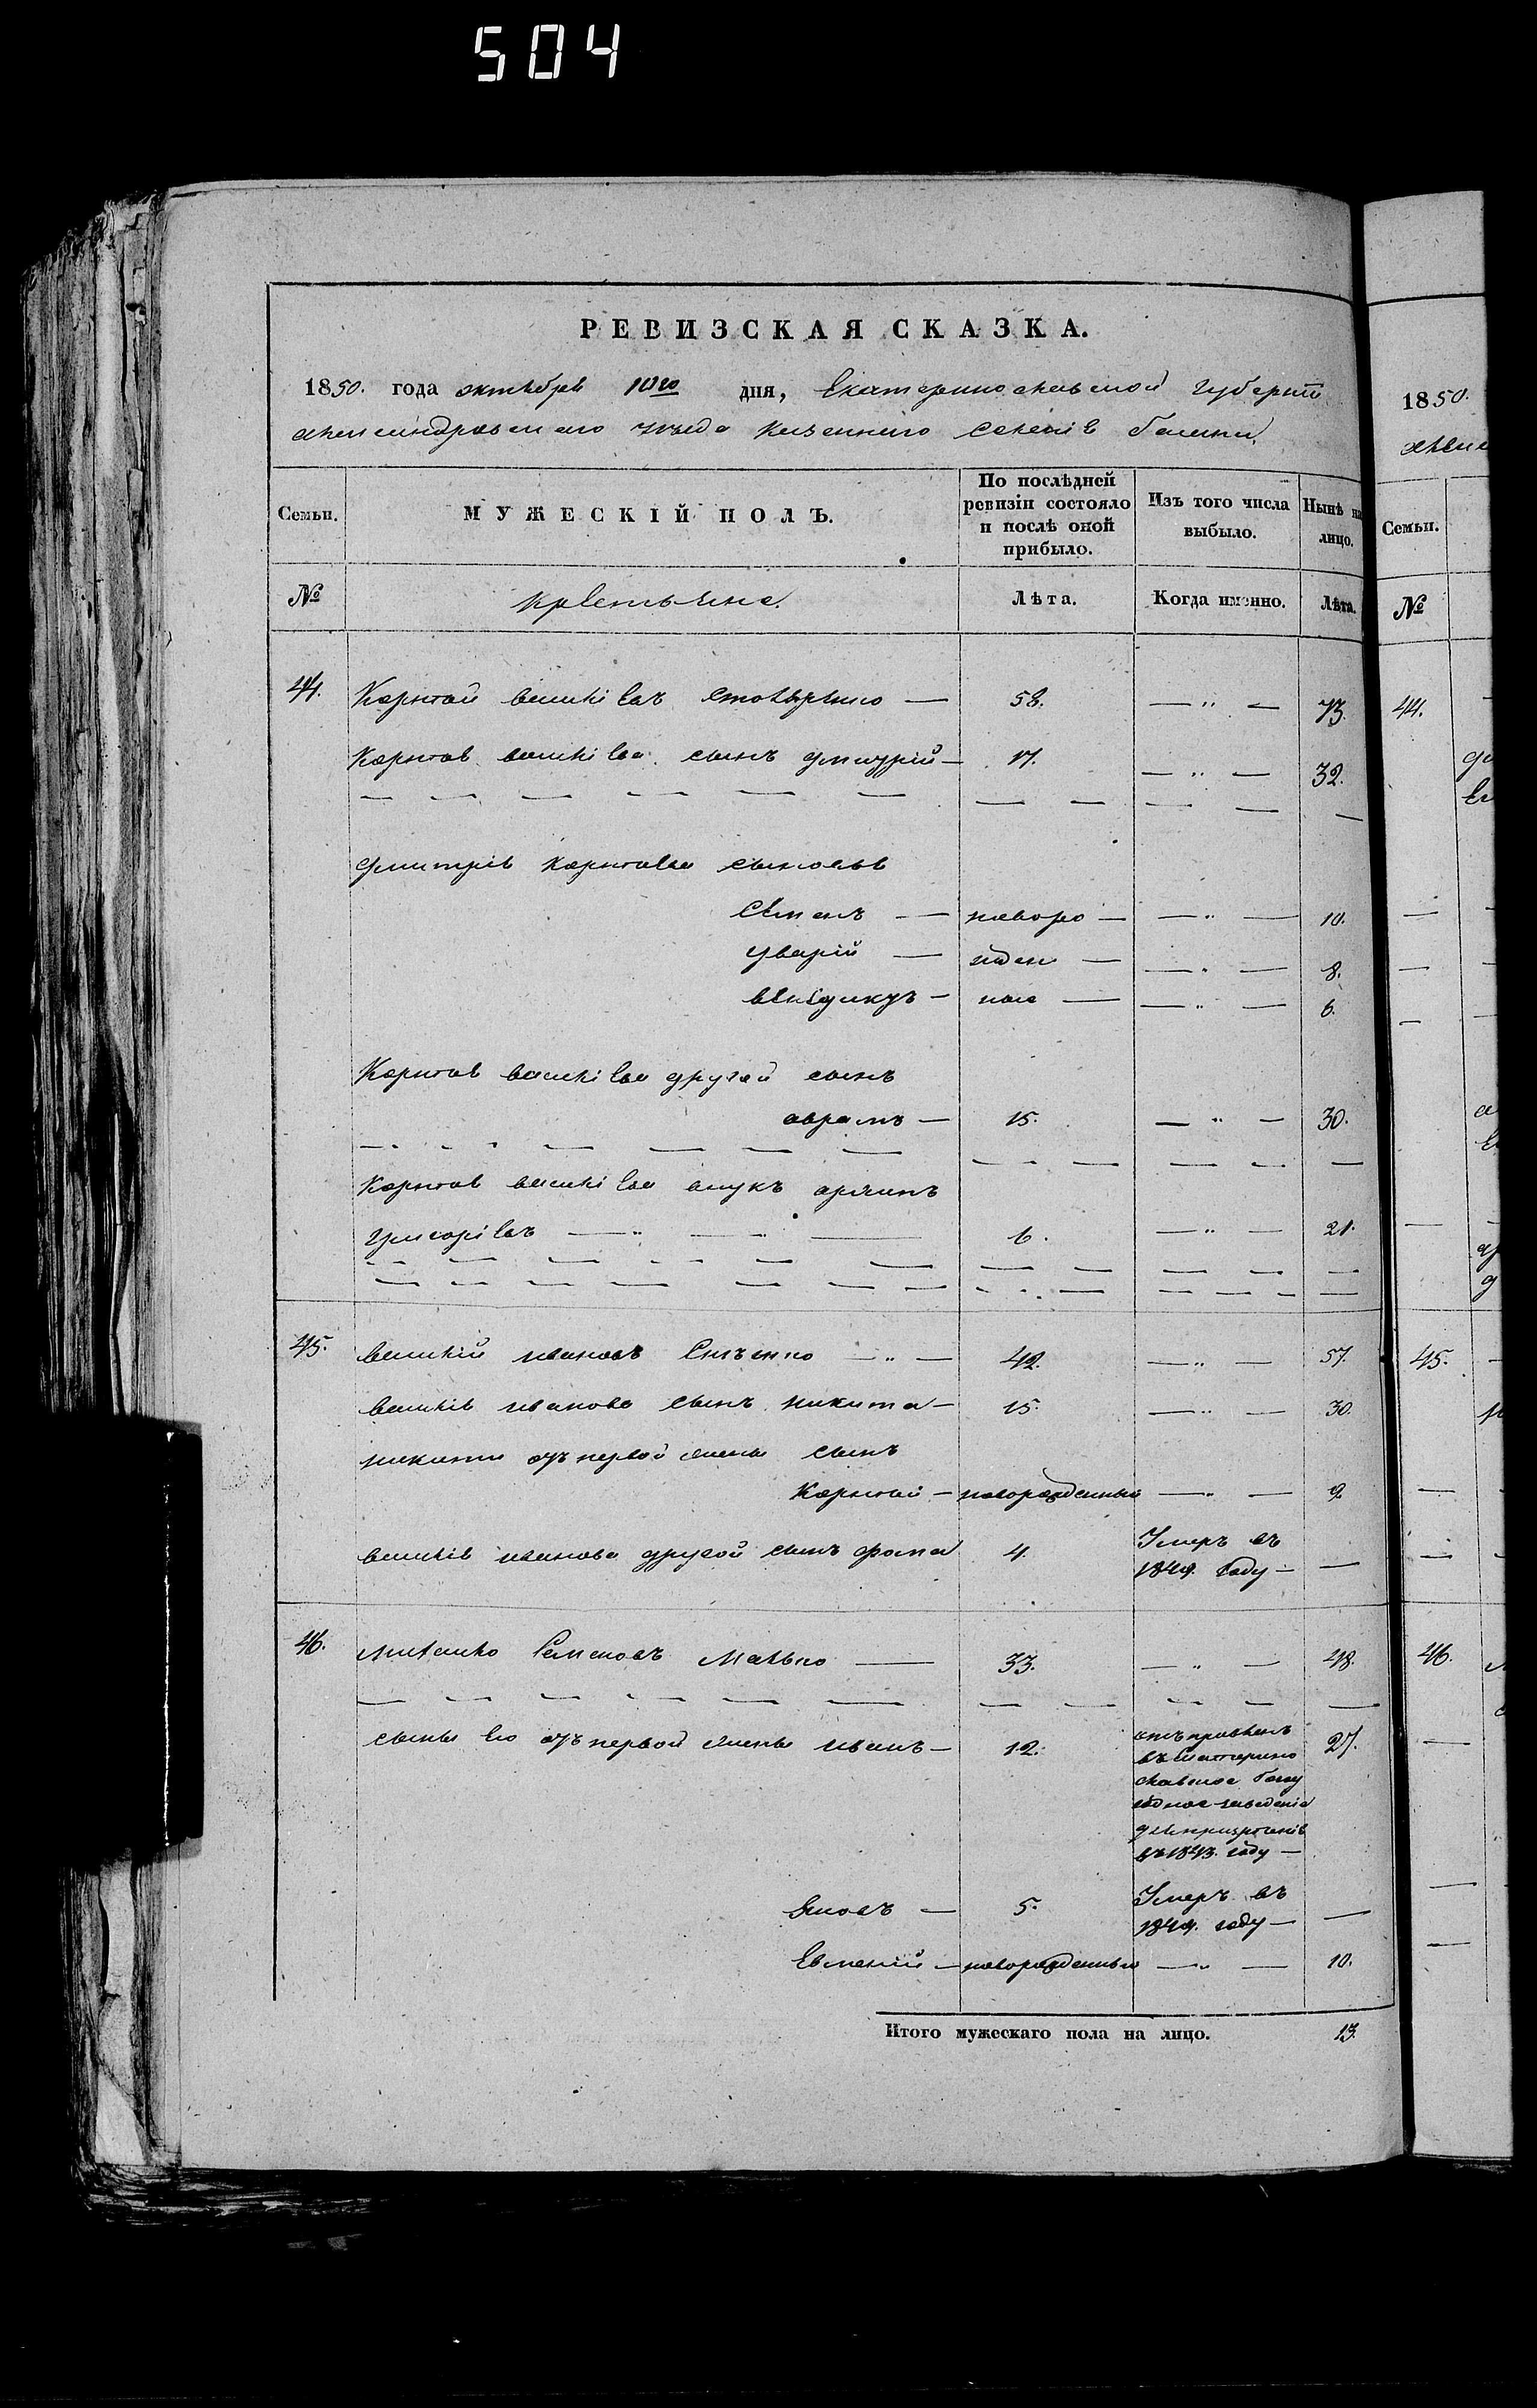 504
РЕВИЗСКАЯ СКАЗКА.
1850. года октября 10го дня, Екатеринославской губерніи
александровскаго уѣзда казеннаго селенія
Семьи.
МУЖЕСКІЙ ПОЛЪ.
По послѣдней ревизіи состояло и послѣ оной прибыло.
Изъ того числа выбыло.
Нынѣ на лицо.
№
крестьяне.
Лѣта.
Когда именно.
Лѣта.
44. Корней василіевъ — 58. — " — 73.
Корнея василіева сынъ дмитрій — 17. — " — 32.
дмитрія корнеева сыновья
— новоро — — " — 10.
уварій — жден — — " — 8.
венедиктъ — ные — — " — 6.
Корнея василіева другой сынъ
аврамъ — 15. — " — 30.
Корнея василіева внукъ
григоріевъ — " — " — 6. — " — 21.
45. василій ивановъ — " — 42. — " — 57.
василія иванова сынъ никита — 15. — " — 30.
никиты отъ первой жены сынъ
Корней — новорожденный — " — 9.
василія иванова другой сынъ фома 4. Умеръ въ
1849. году — —
46. Семеновъ Малько — 33. — " — 48.
сыны его отъ первой жены иванъ — 12. отъправленъ 27.
въ Екатерино
славское Богоу
годное заведеніе
для призренія
въ 1843. году —
Яковъ — 5. Умеръ въ
1849. году — —
Евменій — новорожденный — " — 10.
Итого мужескаго пола на лицо. 13.
1850.
Семьи.
№
44.
45.
46.